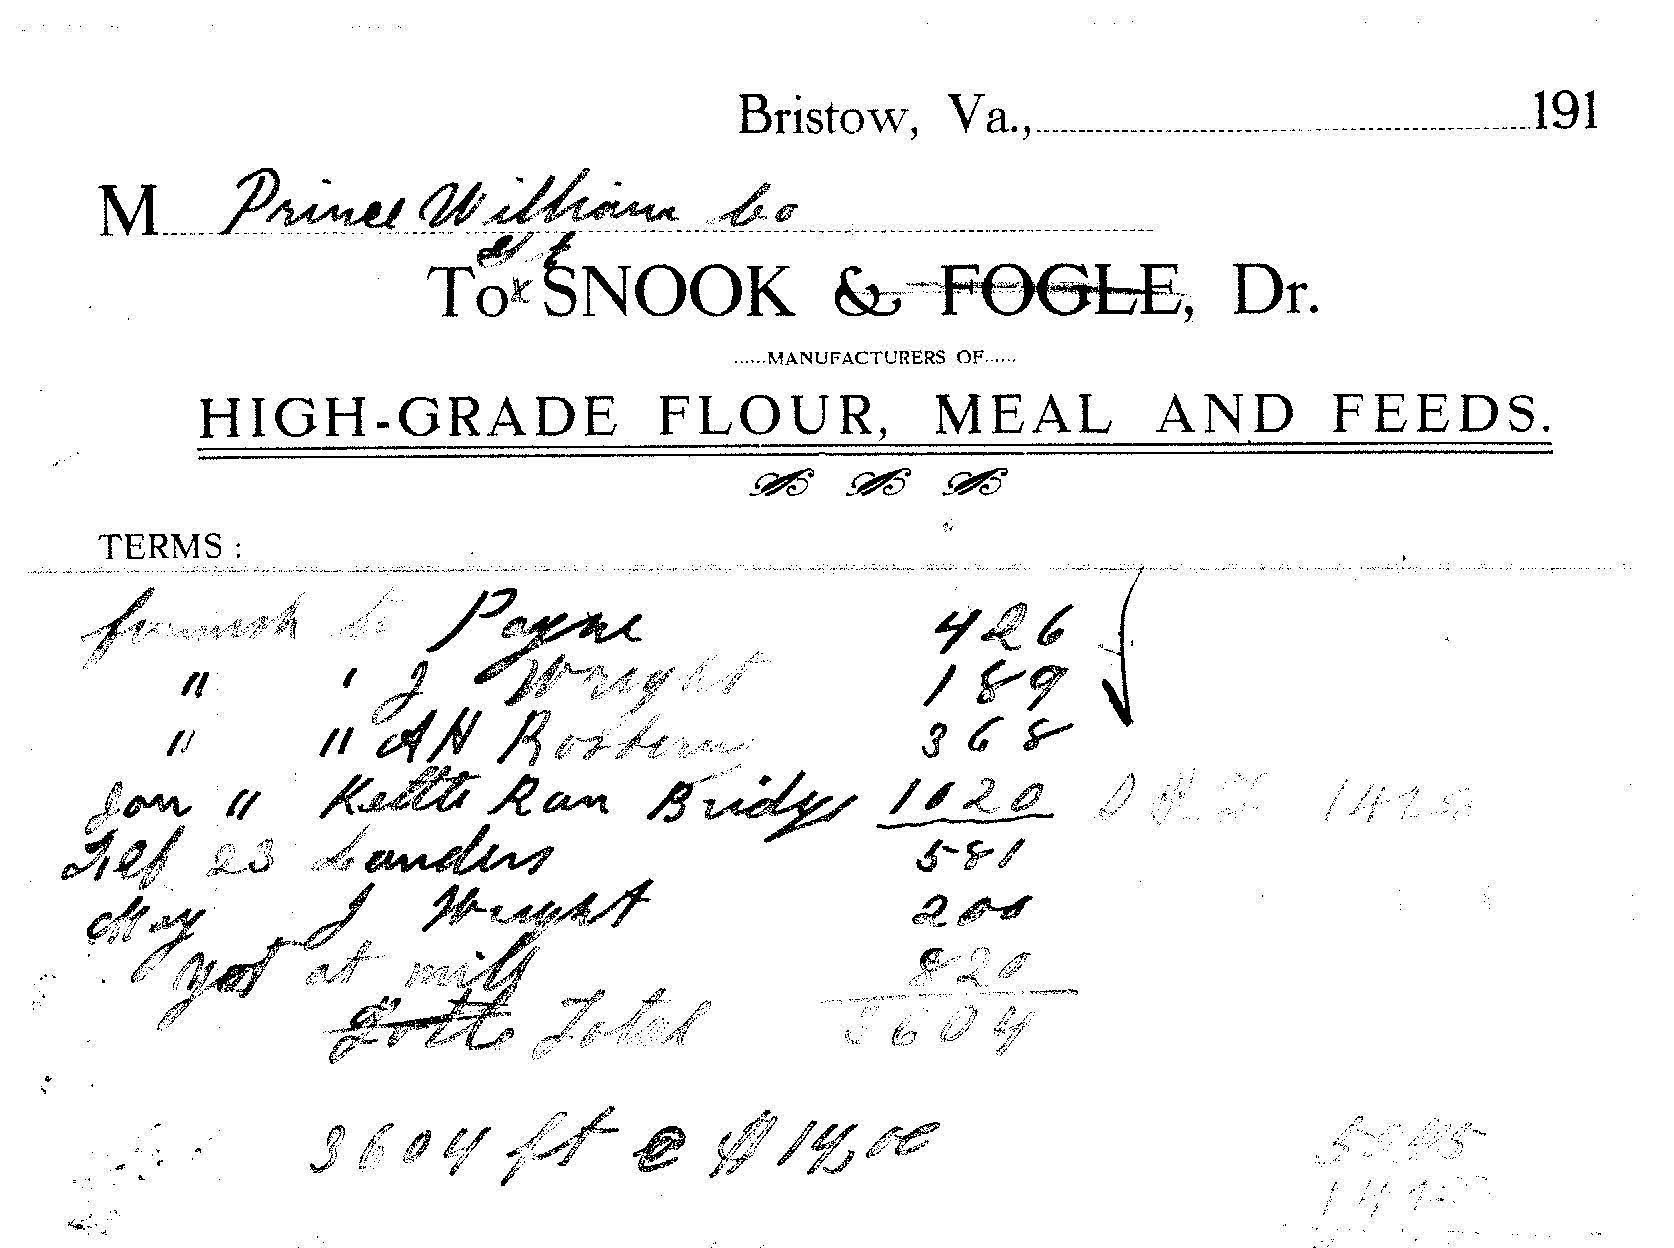 Bristow, Va., 191
M Prince William Co
To SNOOK & FOGLE, Dr.
MANUFACTURERS OF
HIGH-GRADE FLOUR, MEAL AND FEEDS.
TERMS :
furnish to Payne 426
" " J Wright 189
" " AH 368
Jan " Kettle Run Bridge 1020
Feb 23 Landers 581
May J Wright 200
got at mill 820
Total 3604
3604 ft @ $14,00